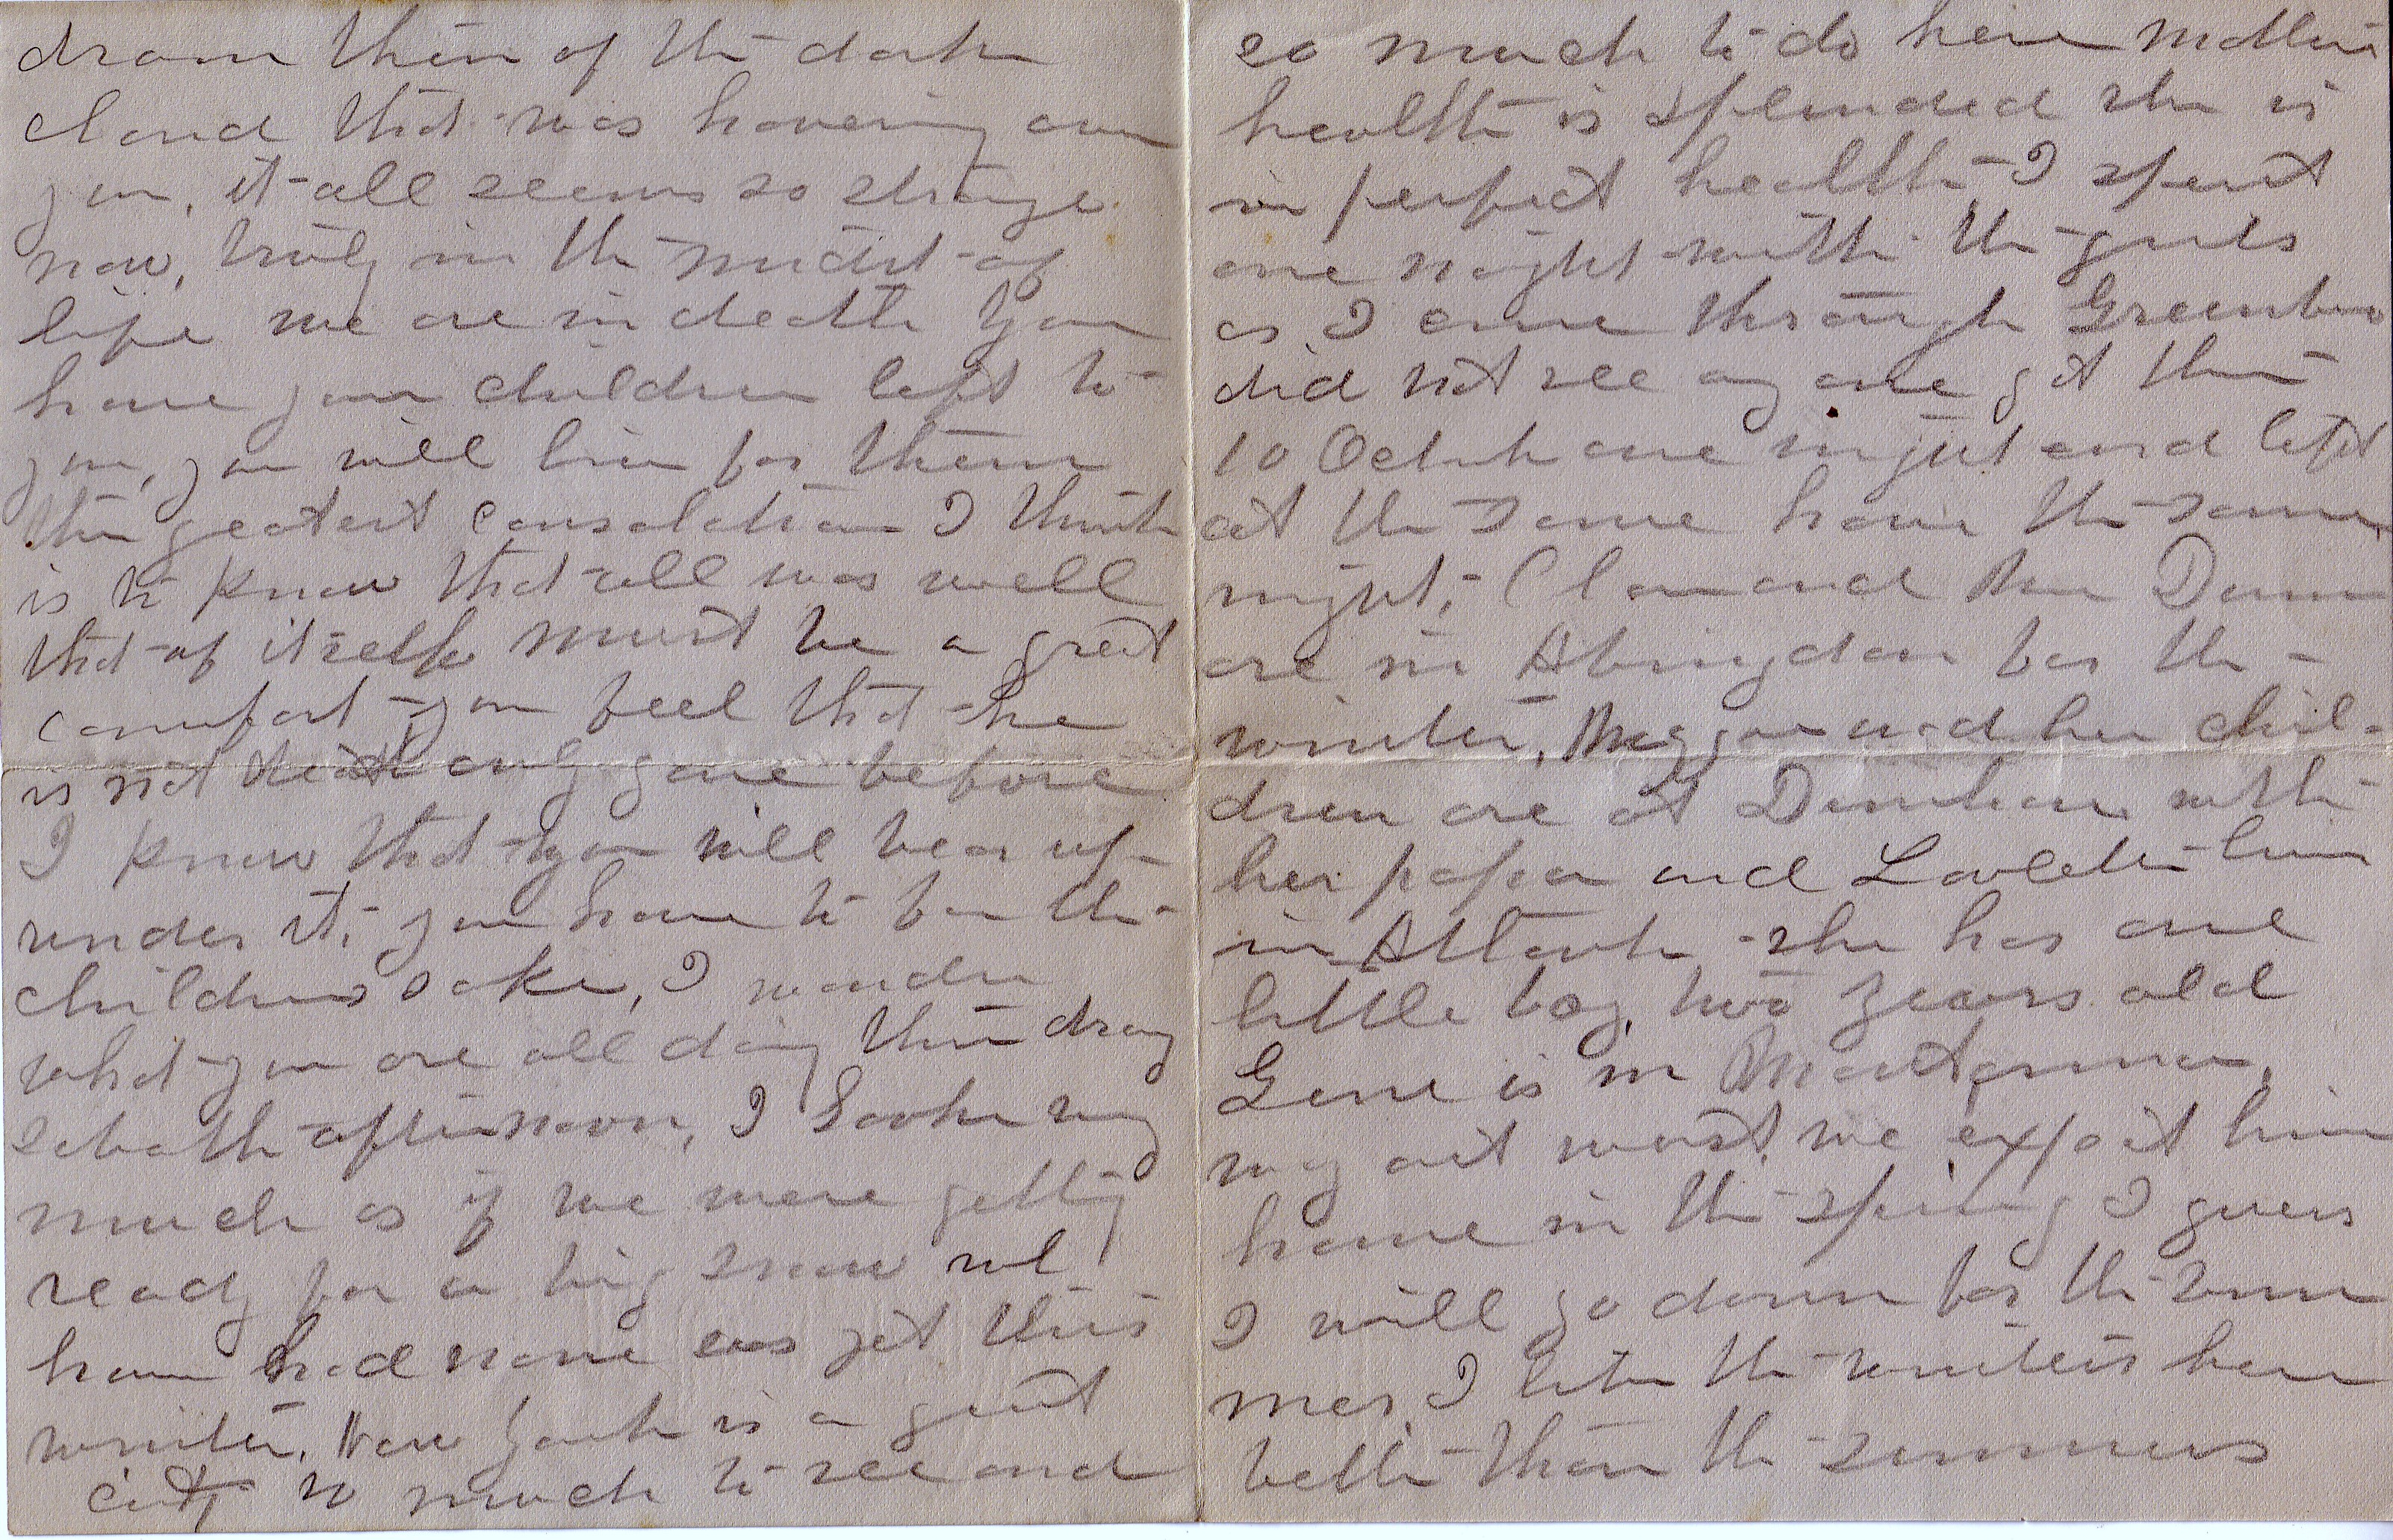 dream then of the dark
cloud that was hovering over
you, it all seems so strange
now, truly in the midst of
life we are in death You
have your children left to
you, you will live for them
the geatest consolation I think
is to know that all was well
that of itself must be a great
comfort you feel that he
is not dead only gone before
I know that you will bear up
under it, you have to for the
childrens sake, I wonder
what you are all doing this dreay
sabath afternoon, I looks very
much as if we were getting
ready for a big snow we
have had none as yet this
winter, New York is a great
city so much to see and
so much to do here Mother
health is splended she is
in perfect health I spent
one night with the girls
as I came through Greensboro
did not see any one got there
10 Oclock one night and left
at the same hour the same
night,
are in Abingdon for the
winter, and her chil-
dren are at Durham with
her papa and live
in she has one
little boy, two years old
Gene is in Montanna,
way out west, we expect him
home in the spring I guess
I will go down for the sum
mer, I like the winters here
better than the summers